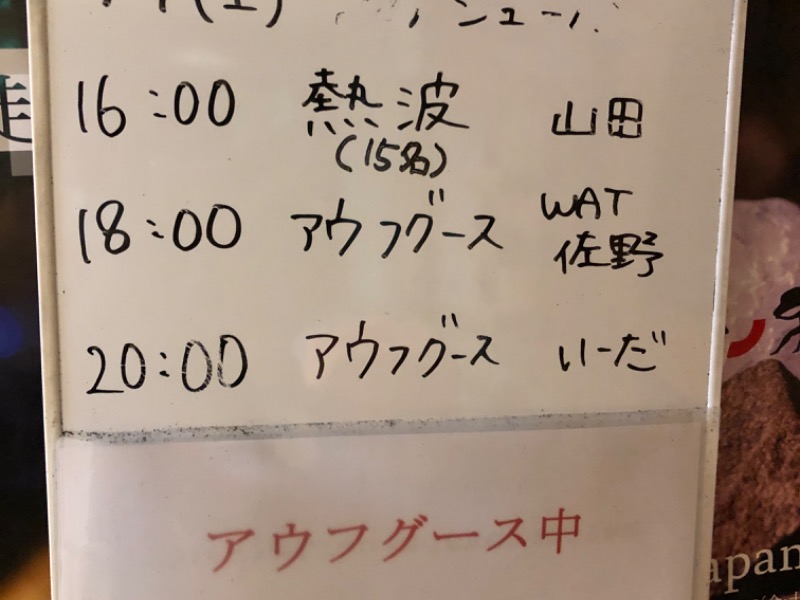 16:00 熱波 山田
(15名)
18:00 アウフグース WAT
佐野
20:00 アウフグース いーだ
アウフグース中
apan